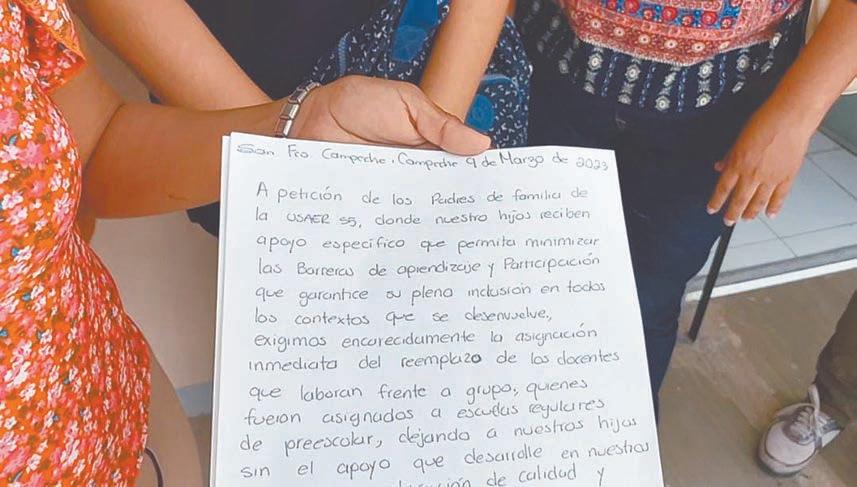 San Fco Campeche, Campeche 9 de Marzo de 2023
A petición de los Padres de familia de
la USAER 55, donde nuestro hijos reciben
apoyo especifico que permita minimizar
las Barreras de aprendizaje y Participación
que garantice su plena inclusión en todos
los contextos que se desenvuelve,
exigimos encarecidamente la asignación
inmediata del reemplazo de los docentes
que laboran frente a grupo, quienes
fueron asignados a escuelas regulares
de preescolar, dejando a nuestros hijos
sin el apoyo que desarrolle en nuestros
de calidad y